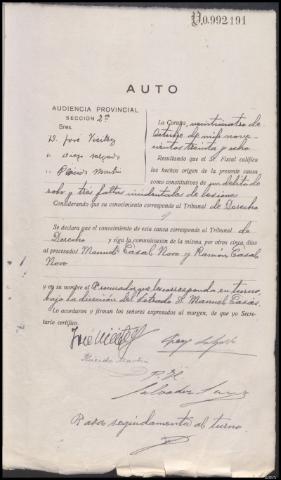 0.992191
AUTO
AUDIENCIA PROVINCIAL
SECCIÓN 2ª
Sres.
D. José Vieitez
» Diego Salgado
» Plácido Martín
La Coruña, veinticuatro de
Octubre de mil nove-
cientos treinta y ocho
Resultando que el Sr. Fiscal califica
los hechos origen de la presente causa
como constitutivos de un delito de
robo y tres faltas incidentales de lesiones
Considerando que su conocimiento corresponde al Tribunal de Derecho
Se declara que el conocimiento de esta causa corresponde al Tribunal de
Derecho y siga la comunicación de la misma, por otros cinco, días
al procesados Manuel Casal Novo y Ramón Casal
Novo
y en su nombre al Procurador que le corresponda en turno,
bajo la dirección del Letrado D. Manuel Casás.
Lo acordaron y firman los señores expresados al margen, de que yo Secre-
tario certifico.
José Vieitez
Plácido Martín
Pasa seguidamente al turno.